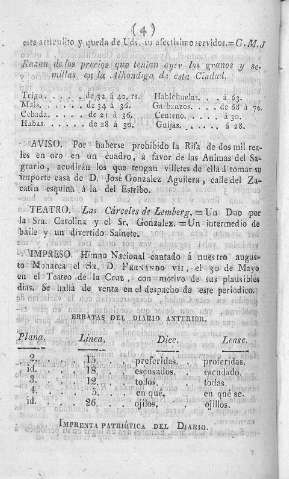 (4)
este articulito y queda de Uds. su afectísimo servidos.=G. M. J
Razon de los precios que tenian ayer los granos y se-
millas en la Alhondiga de esta Ciudad.
Trigo. . . . . de 32 á 40, rs. Habichuelas. . . . á 65.
Mais. . . . . . de 34 á 36. Garbanzos. . . de 68 á 70.
Cebada. . . . . de 21 á 36. Centeno. . . . . á 30.
Habas. . . . . de 28 á 30. Guijas. . . . . . á 28.
AVISO. Por haberse prohibido la Rifa de dos mil rea-
les en oro en un cuadro, a favor de las Animas del Sa-
grario, acudirán los que tengan villetes de ella á tomar su
importe casa de D. José Gonzalez Aguilera, calle del Za-
catin esquina á la del Estribo.
TEATRO. Las Cárceles de Lemberg. = Un Duo por
la Sra. Catolina y el Sr. Gonzalez. = Un intermedio de
baile y un divertido Sainete.
IMPRESO. Himno Nacional cantado á nuestro augus-
to Monarca el Sr. D. FERNANDO VII, el 30 de Mayo
en el Teatro de la Cruz, con motivo de sus plausibles
dias. Se halla de venta en el despacho de este periodico.
ERRATAS DEL DIARIO ANTERIOR.
Plana. Linea. Dice. Lease.
2. . . 15. . . preferidas. . . proferidas.
id. . . 18. . . escusados. . . escudado.
3. . . 12. . . todos. . . todas.
4. . . 5. . . en qué. . . en qué se.
id. . . 26. . . ojillos. . . ojillos.
IMPRENTA PATRIÓTICA DEL DIARIO.